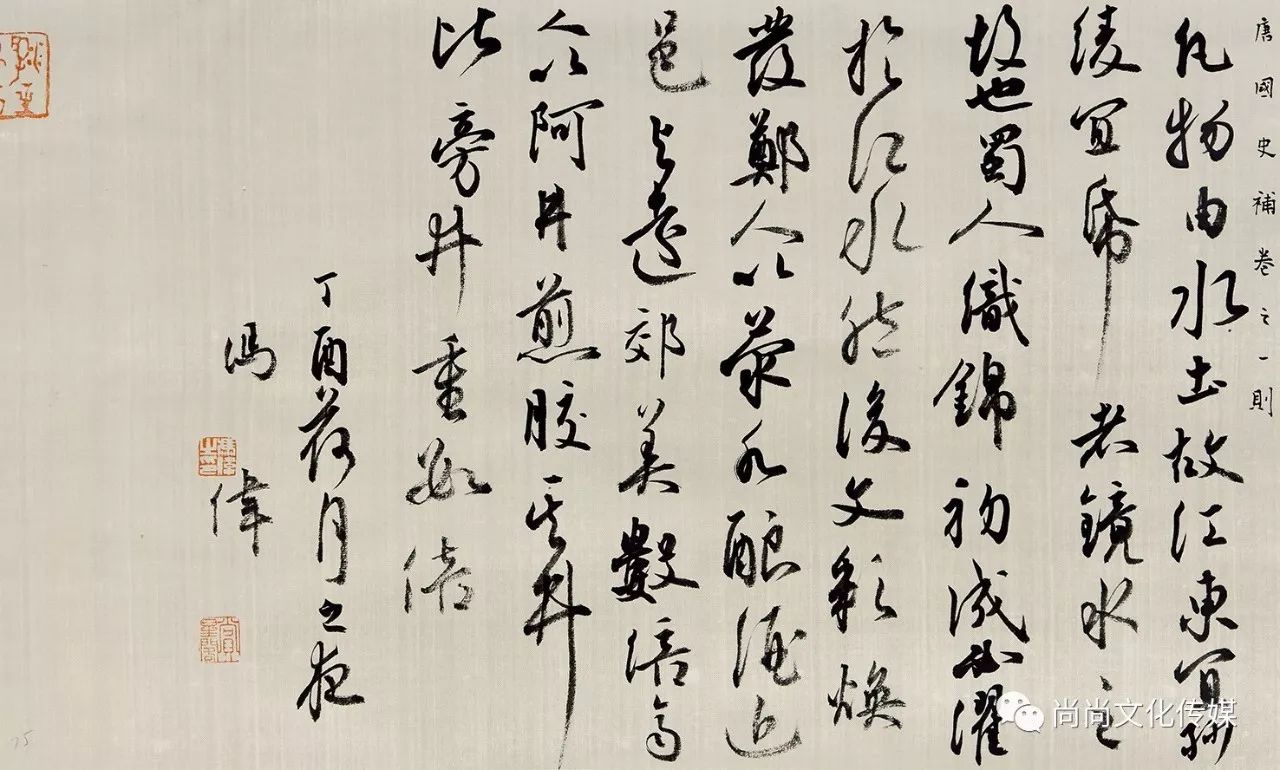 唐國史補卷之一則
凡物由水土故江東宜紗
綾宜帋者鏡水之
故也蜀人織錦初成必濯
於江水然後文彩煥
發鄭人以滎水酿酒近
邑与遠郊美數倍齊
人以阿井煎胶其井
比旁井重數倍
丁酉荷月之夜
馮偉
尚尚文化传媒